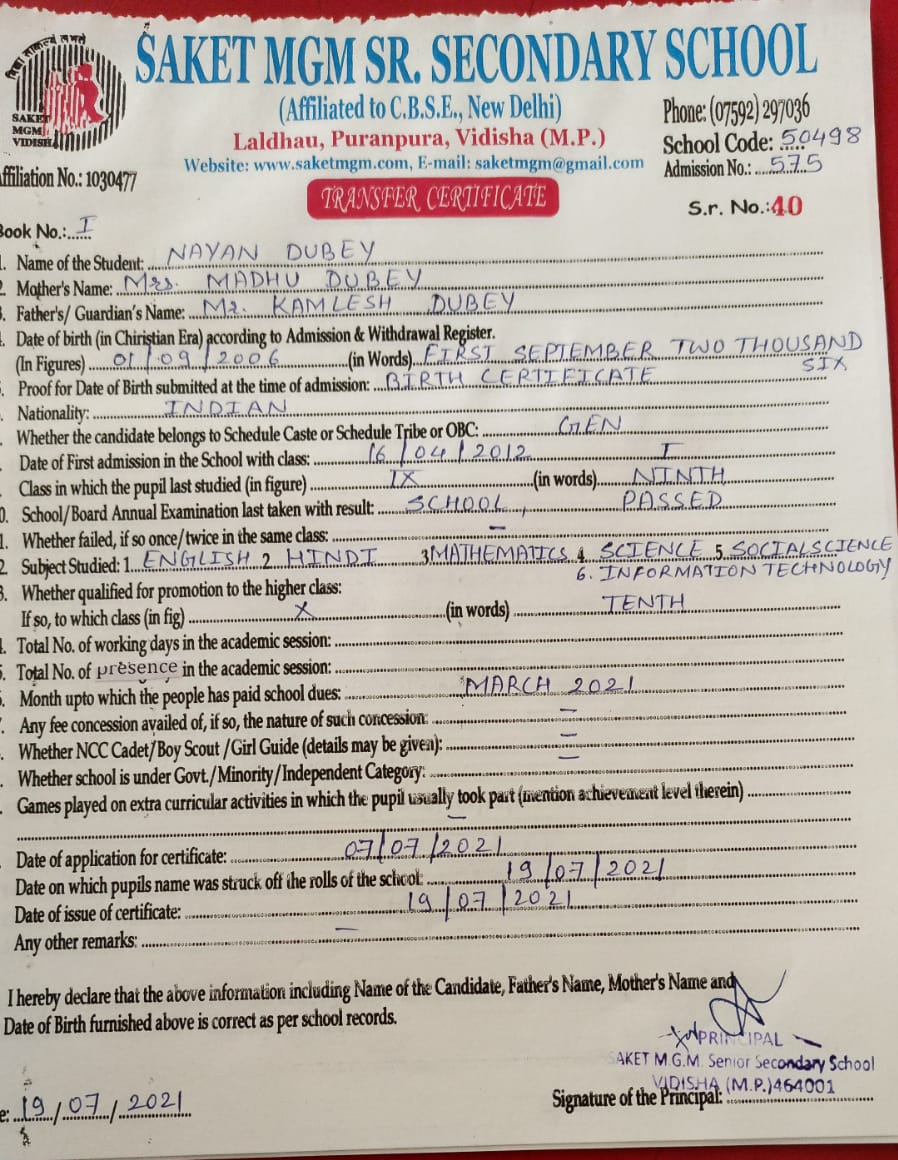 विद्या
SAKET
MGM
VIDISHA
SAKET MGM SR. SECONDARY SCHOOL
(Affiliated to C.B.S.E., New Delhi)
Laldhau, Puranpura, Vidisha (M.P.)
Website: www.saketmgm.com, E-mail: saketmgm@gmail.com
Phone: (07592) 297036
School Code: 50498
Admission No.: 575
ffiliation No.: 1030477
TRANSFER CERTIFICATE
S.r. No.:40
Book No.: I
. Name of the Student: NAYAN DUBEY
2. Mother's Name: Mrs. MADHU DUBEY
3. Father's/ Guardian's Name: Mr. KAMLESH DUBEY
. Date of birth (in Chiristian Era) according to Admission & Withdrawal Register.
(In Figures) 01/09/2006 (in Words) FIRST SEPTEMBER TWO THOUSAND
SIX
. Proof for Date of Birth submitted at the time of admission: BIRTH CERTIFICATE
. Nationality: INDIAN
. Whether the candidate belongs to Schedule Caste or Schedule Tribe or OBC: GEN
. Date of First admission in the School with class: 16/04/2012 I
. Class in which the pupil last studied (in figure) IX (in words) NINTH
0. School/Board Annual Examination last taken with result: SCHOOL, PASSED
1. Whether failed, if so once/twice in the same class: –
2. Subject Studied: 1. ENGLISH 2 HINDI 3 MATHEMATICS 4 SCIENCE 5. SOCIAL SCIENCE
6. INFORMATION TECHNOLOGY
3. Whether qualified for promotion to the higher class:
If so, to which class (in fig) X (in words) TENTH
4. Total No. of working days in the academic session:
5. Total No. of presence in the academic session:
6. Month upto which the people has paid school dues: MARCH 2021
7. Any fee concession availed of, if so, the nature of such concession: –
. Whether NCC Cadet/Boy Scout /Girl Guide (details may be given): –
. Whether school is under Govt./Minority/Independent Category: –
. Games played on extra curricular activities in which the pupil usually took part (mention achievement level therein)
–
Date of application for certificate: 07/07/2021
Date on which pupils name was struck off the rolls of the school: 19/07/2021
Date of issue of certificate: 19/07/2021
Any other remarks: –
I hereby declare that the above information including Name of the Candidate, Father's Name, Mother's Name and
Date of Birth furnished above is correct as per school records.
PRINCIPAL
SAKET M.G.M. Senior Secondary School
VIDISHA (M.P.)464001
e: 19/07/2021
Signature of the Principal: